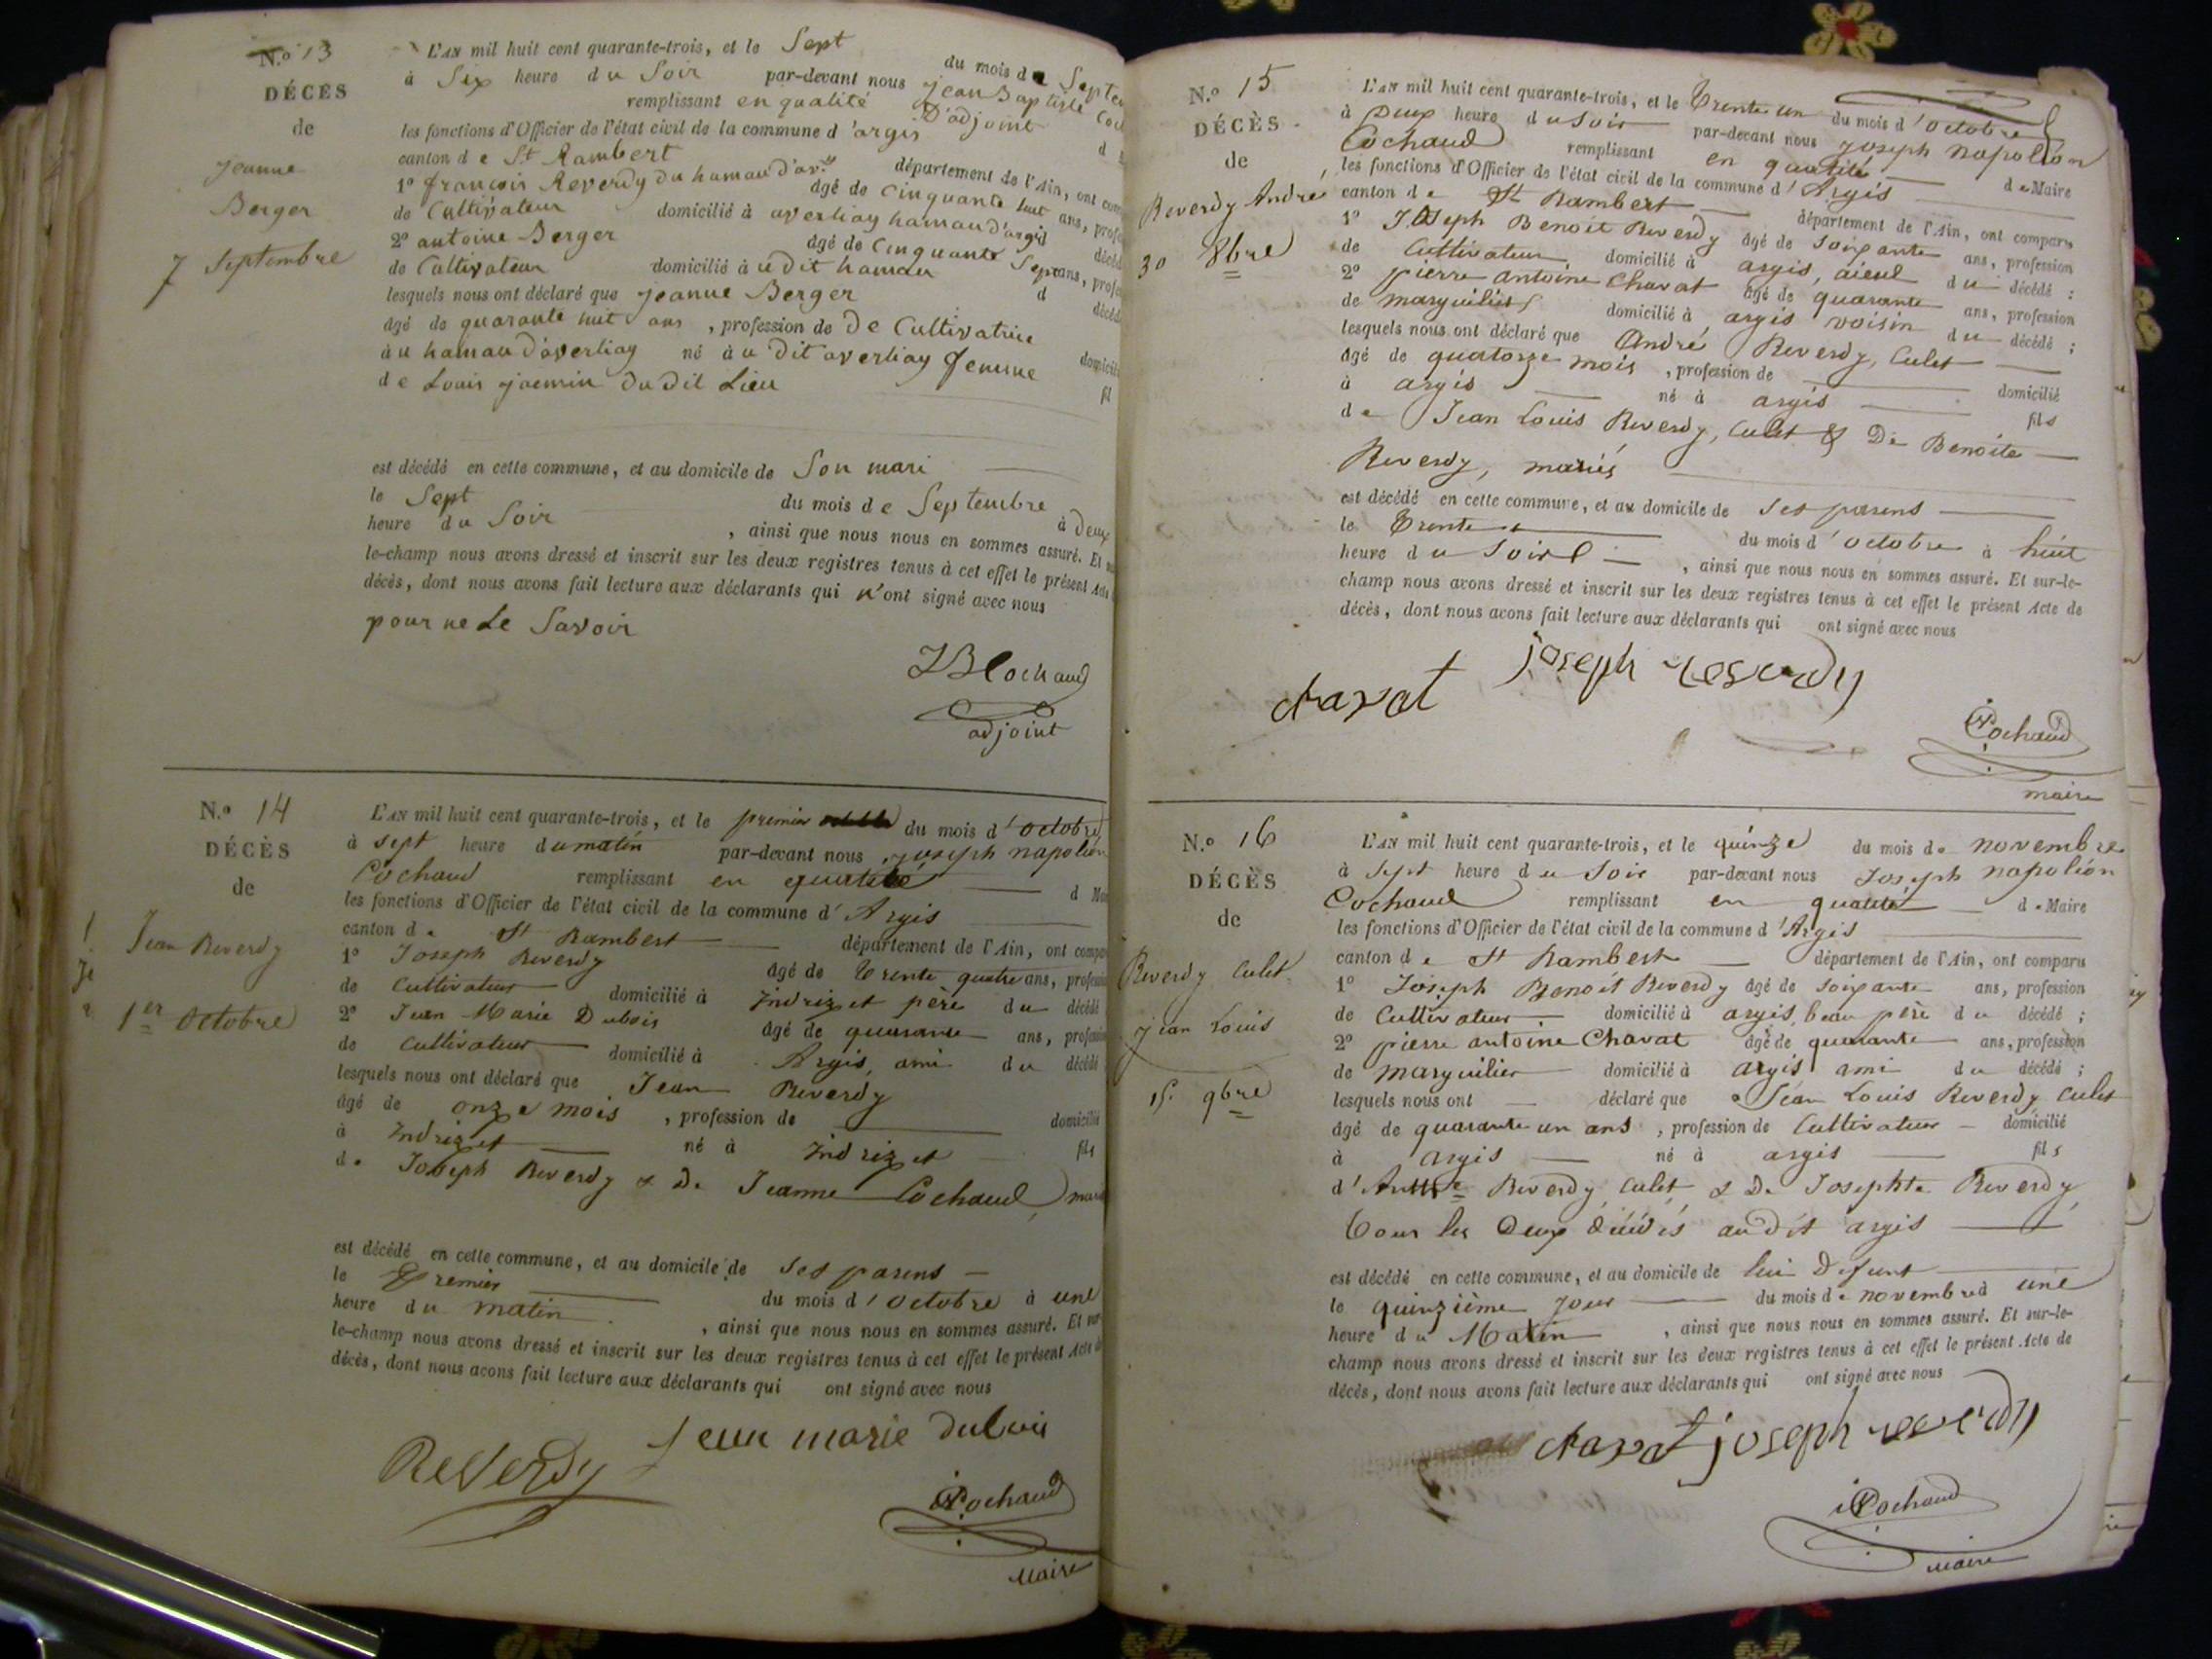 N.o 13
DÉCÈS
de
Jeanne
Berger
7 Septembre
L'AN mil huit cent quarante-trois, et le Sept du mois de Septe
à Six heure du Soir par-devant nous jean Baptiste Coch
remplissant en qualité D'adjoint d
les fonctions d'Officier de l'état civil de la commune d'argis
canton de St Rambert département de l'Ain, ont com
1o françois Reverdy du hamau d'av. âgé de Cinquante huit ans, profe
de Cultivateur domicilié à averliay hamau d'argis décéd
2o antoine Berger âgé de Cinquante Sept ans, profe
de Cultivateur domicilié à u dit hamau d décéd
lesquels nous ont déclaré que jeanne Berger
âgé de quarante huit ans, profession de De Cultivatrice domicili
à u hamau d'averliay né à u Dit averliay femme fil
de Louis joemin du dit Lieu
est décédé en cette commune, et au domicile de Son mari
le Sept du mois de Septembre à Deux
heure du Soir, ainsi que nous nous en sommes assuré. Et sur
le-champ nous avons dressé et inscrit sur les deux registres tenus à cet effet le présent Acte
décès, dont nous avons fait lecture aux déclarants qui n'ont signé avec nous
pour ne Le Savoir
JB Cochaud
adjoint
N.o 14
DÉCÈS
de
Jean Reverdy
1er Octobre
L'AN mil huit cent quarante-trois, et le premier du mois d'octobre
à sept heure du matin par-devant nous joseph napoléon
Cochaud remplissant en qualité d Mai
les fonctions d'Officier de l'état civil de la commune d'Argis
canton de St Rambert département de l'Ain, ont compar
1o Joseph Reverdy âgé de trente quatre ans, profession
de Cultivateur domicilié à Indrizet père du décédé
2o Jean Marie Dubois âgé de quarante ans, profession
de Cultivateur domicilié à Argis, ami du décédé
lesquels nous ont déclaré que Jean Reverdy
âgé de onze mois, profession de domicilié
à Indrizet né à Indrizet fils
de Joseph Reverdy & De Jeanne Cochaud, mari
est décédé en cette commune, et au domicile de Ses parens
le Premier du mois d'octobre à une
heure du matin, ainsi que nous nous en sommes assuré. Et sur
le-champ nous avons dressé et inscrit sur les deux registres tenus à cet effet le présent Acte de
décès, dont nous avons fait lecture aux déclarants qui ont signé avec nous
ReVerDy Jean marie Dubois
Cochaud
Maire
N.o 15
DÉCÈS
de
Reverdy André
30 8bre
L'AN mil huit cent quarante-trois, et le Trente un du mois d'octobre
à Deux heure du Soir par-devant nous Joseph Napoléon
Cochaud remplissant en qualité de Maire
les fonctions d'Officier de l'état civil de la commune d'Argis
canton de St Rambert département de l'Ain, ont comparu
1o Joseph Benoit Reverdy âgé de Soixante ans, profession
de Cultivateur domicilié à argis, aieul du décédé ;
2o pierre antoine Chavat âgé de quarante ans, profession
de marguilier domicilié à argis voisin du décédé ;
lesquels nous ont déclaré que André Reverdy, Culet
âgé de quatorze mois, profession de domicilié
à argis né à argis fils
de Jean Louis Reverdy, Culet & De Benoîte
Reverdy, mariés
est décédé en cette commune, et au domicile de Ses parens
le Trente du mois d'octobre à huit
heure du Soir, ainsi que nous nous en sommes assuré. Et sur-le-
champ nous avons dressé et inscrit sur les deux registres tenus à cet effet le présent Acte de
décès, dont nous avons fait lecture aux déclarants qui ont signé avec nous
chavat joseph reverdy
Cochaud
maire
N.o 16
DÉCÈS
de
Reverdy Culet
jean Louis
15 9bre
L'AN mil huit cent quarante-trois, et le quinze du mois de novembre
à Sept heure du Soir par-devant nous Joseph napoléon
Cochaud remplissant en qualité de Maire
les fonctions d'Officier de l'état civil de la commune d'Argis
canton de St Rambert département de l'Ain, ont comparu
1o Joseph Benoit Reverdy âgé de soixante ans, profession
de Cultivateur domicilié à argis, beau père du décédé ;
2o pierre antoine Chavat âgé de quarante ans, profession
de marguilier domicilié à argis ami du décédé ;
lesquels nous ont déclaré que Jean Louis Reverdy Culet
âgé de quarante un ans, profession de Cultivateur domicilié
à argis né à argis fils
d' Reverdy Culet & De Josephte Reverdy,
Tous les Deux décédés au dit argis
est décédé en cette commune, et au domicile de lui Defunt
le quinzième jour du mois de novembre à une
heure du Matin, ainsi que nous nous en sommes assuré. Et sur-le-
champ nous avons dressé et inscrit sur les deux registres tenus à cet effet le présent Acte de
décès, dont nous avons fait lecture aux déclarants qui ont signé avec nous
chavat joseph reverdy
Cochaud
maire